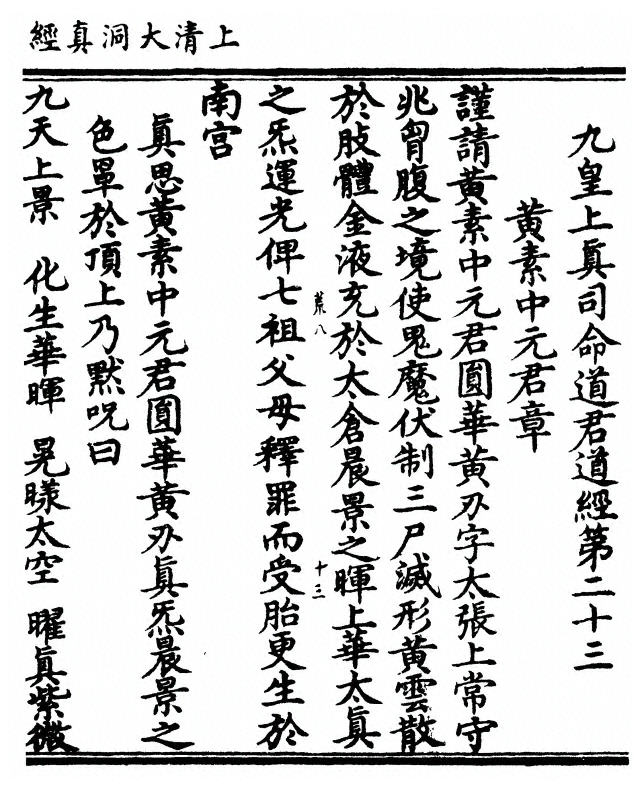 上清大洞真經
九皇上眞司命道君道經第二十三
黃素中元君章
謹請黃素中元君圓華黃刃字太張上常守
兆胷腹之境使鬼魔伏制三尸滅形黃雲散
於肢體金液充於太倉晨景之暉上華太眞
荒八 十三
之炁運光俾七祖父母釋罪而受胎更生於
南宮
眞思黃素中元君圓華黃刃眞炁晨景之
色罩於頂上乃黙呪曰
九天上景 化生華暉 晃曜太空 曜眞紫微